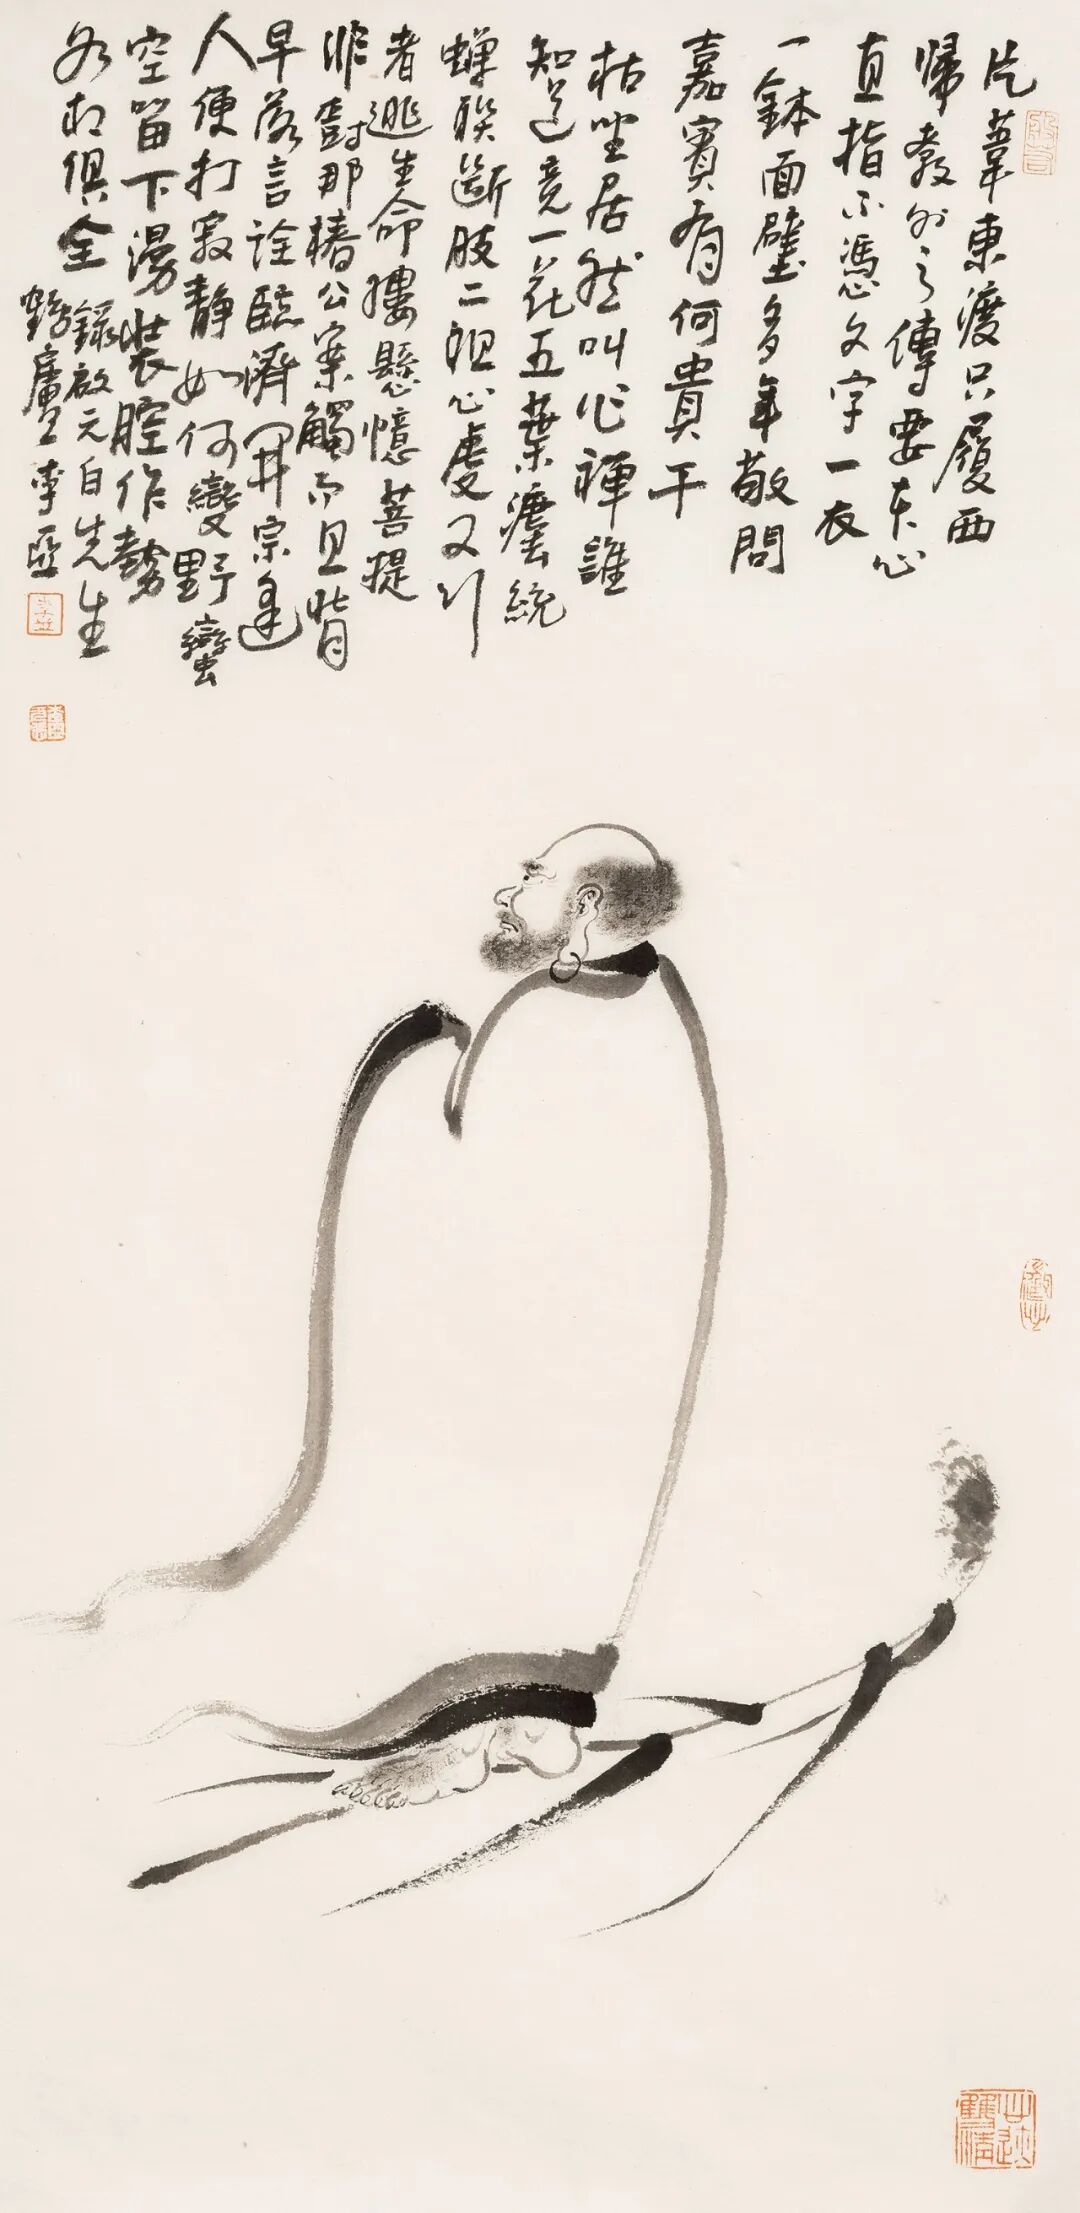 片葦東渡只履西
歸教外之傳要本心
直指不憑文字一衣
一鉢面壁多年敬問
嘉賓有何貴干
枯坐居然叫作禪誰
知道竟一花五葉灋統
蟬聯斷肢二祖心虔又行
者逃生命縷懸憶菩提
非樹那樁公案觸而且背
早落言詮臨濟開宗逢
人便打寂靜如何變野蠻
空留下漫裝腔作勢
名相俱全 錄啟元白先生
鶴廬李亞